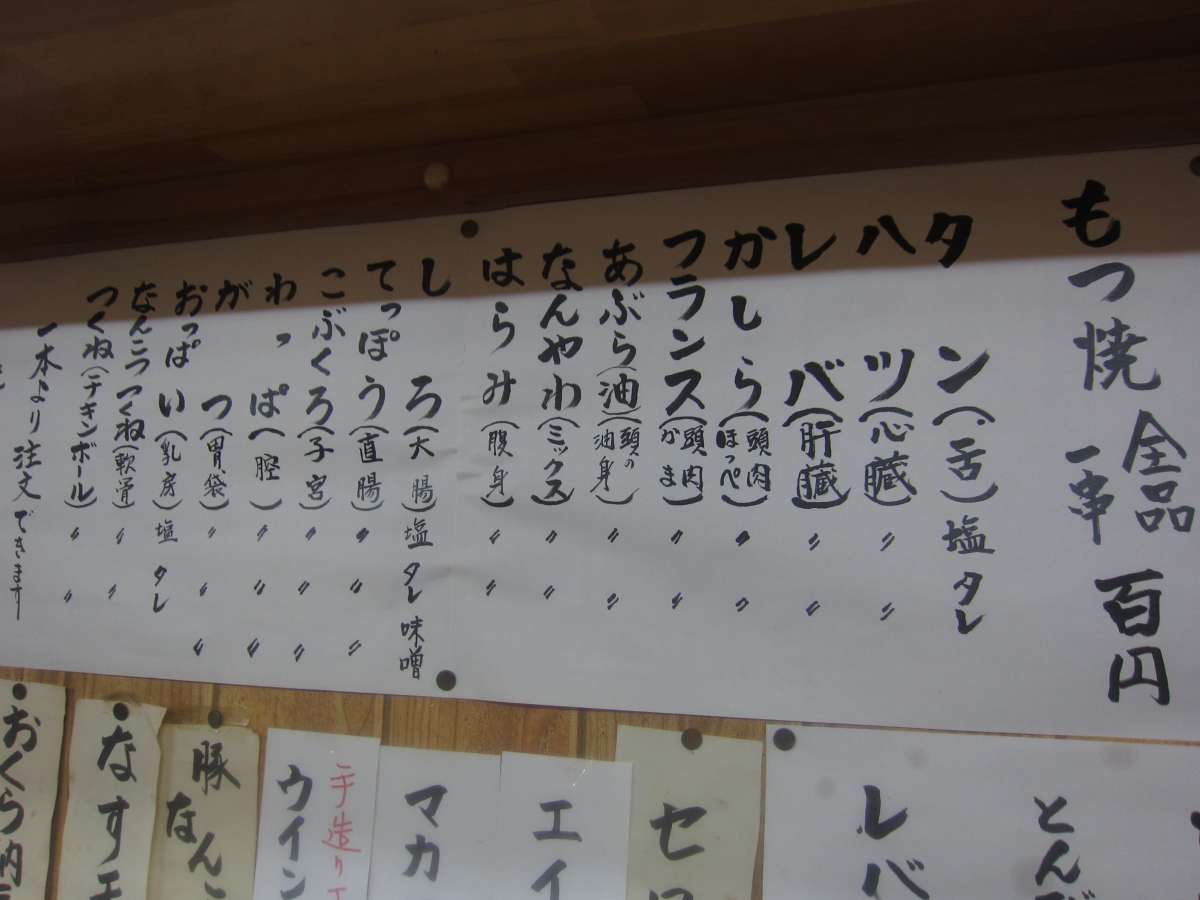 もつ焼 全品一串 百円
タン(舌)塩タレ
ハツ(心臓)〃〃
レバ(肝臓)〃〃
かしら(頭肉ほっぺ)〃〃
フランス(頭肉かま)〃〃
あぶら(油)(頭の油身)〃〃
なんやわ(ミックス)〃〃
はらみ(腹身)〃〃
しろ(大腸)塩タレ味噌
てっぽう(直腸)〃〃〃
こぶくろ(子宮)〃〃〃
わっぱ(腟)〃〃〃
がつ(胃袋)〃〃〃
おっぱい(乳房)塩タレ
なんこつつくね(軟骨)〃〃
つくね(チキンボール)〃〃
一本より注文できます
とん
レバ
セ
エイ
マカ
手造り
ウイン
豚なんこ
なす
おくら納